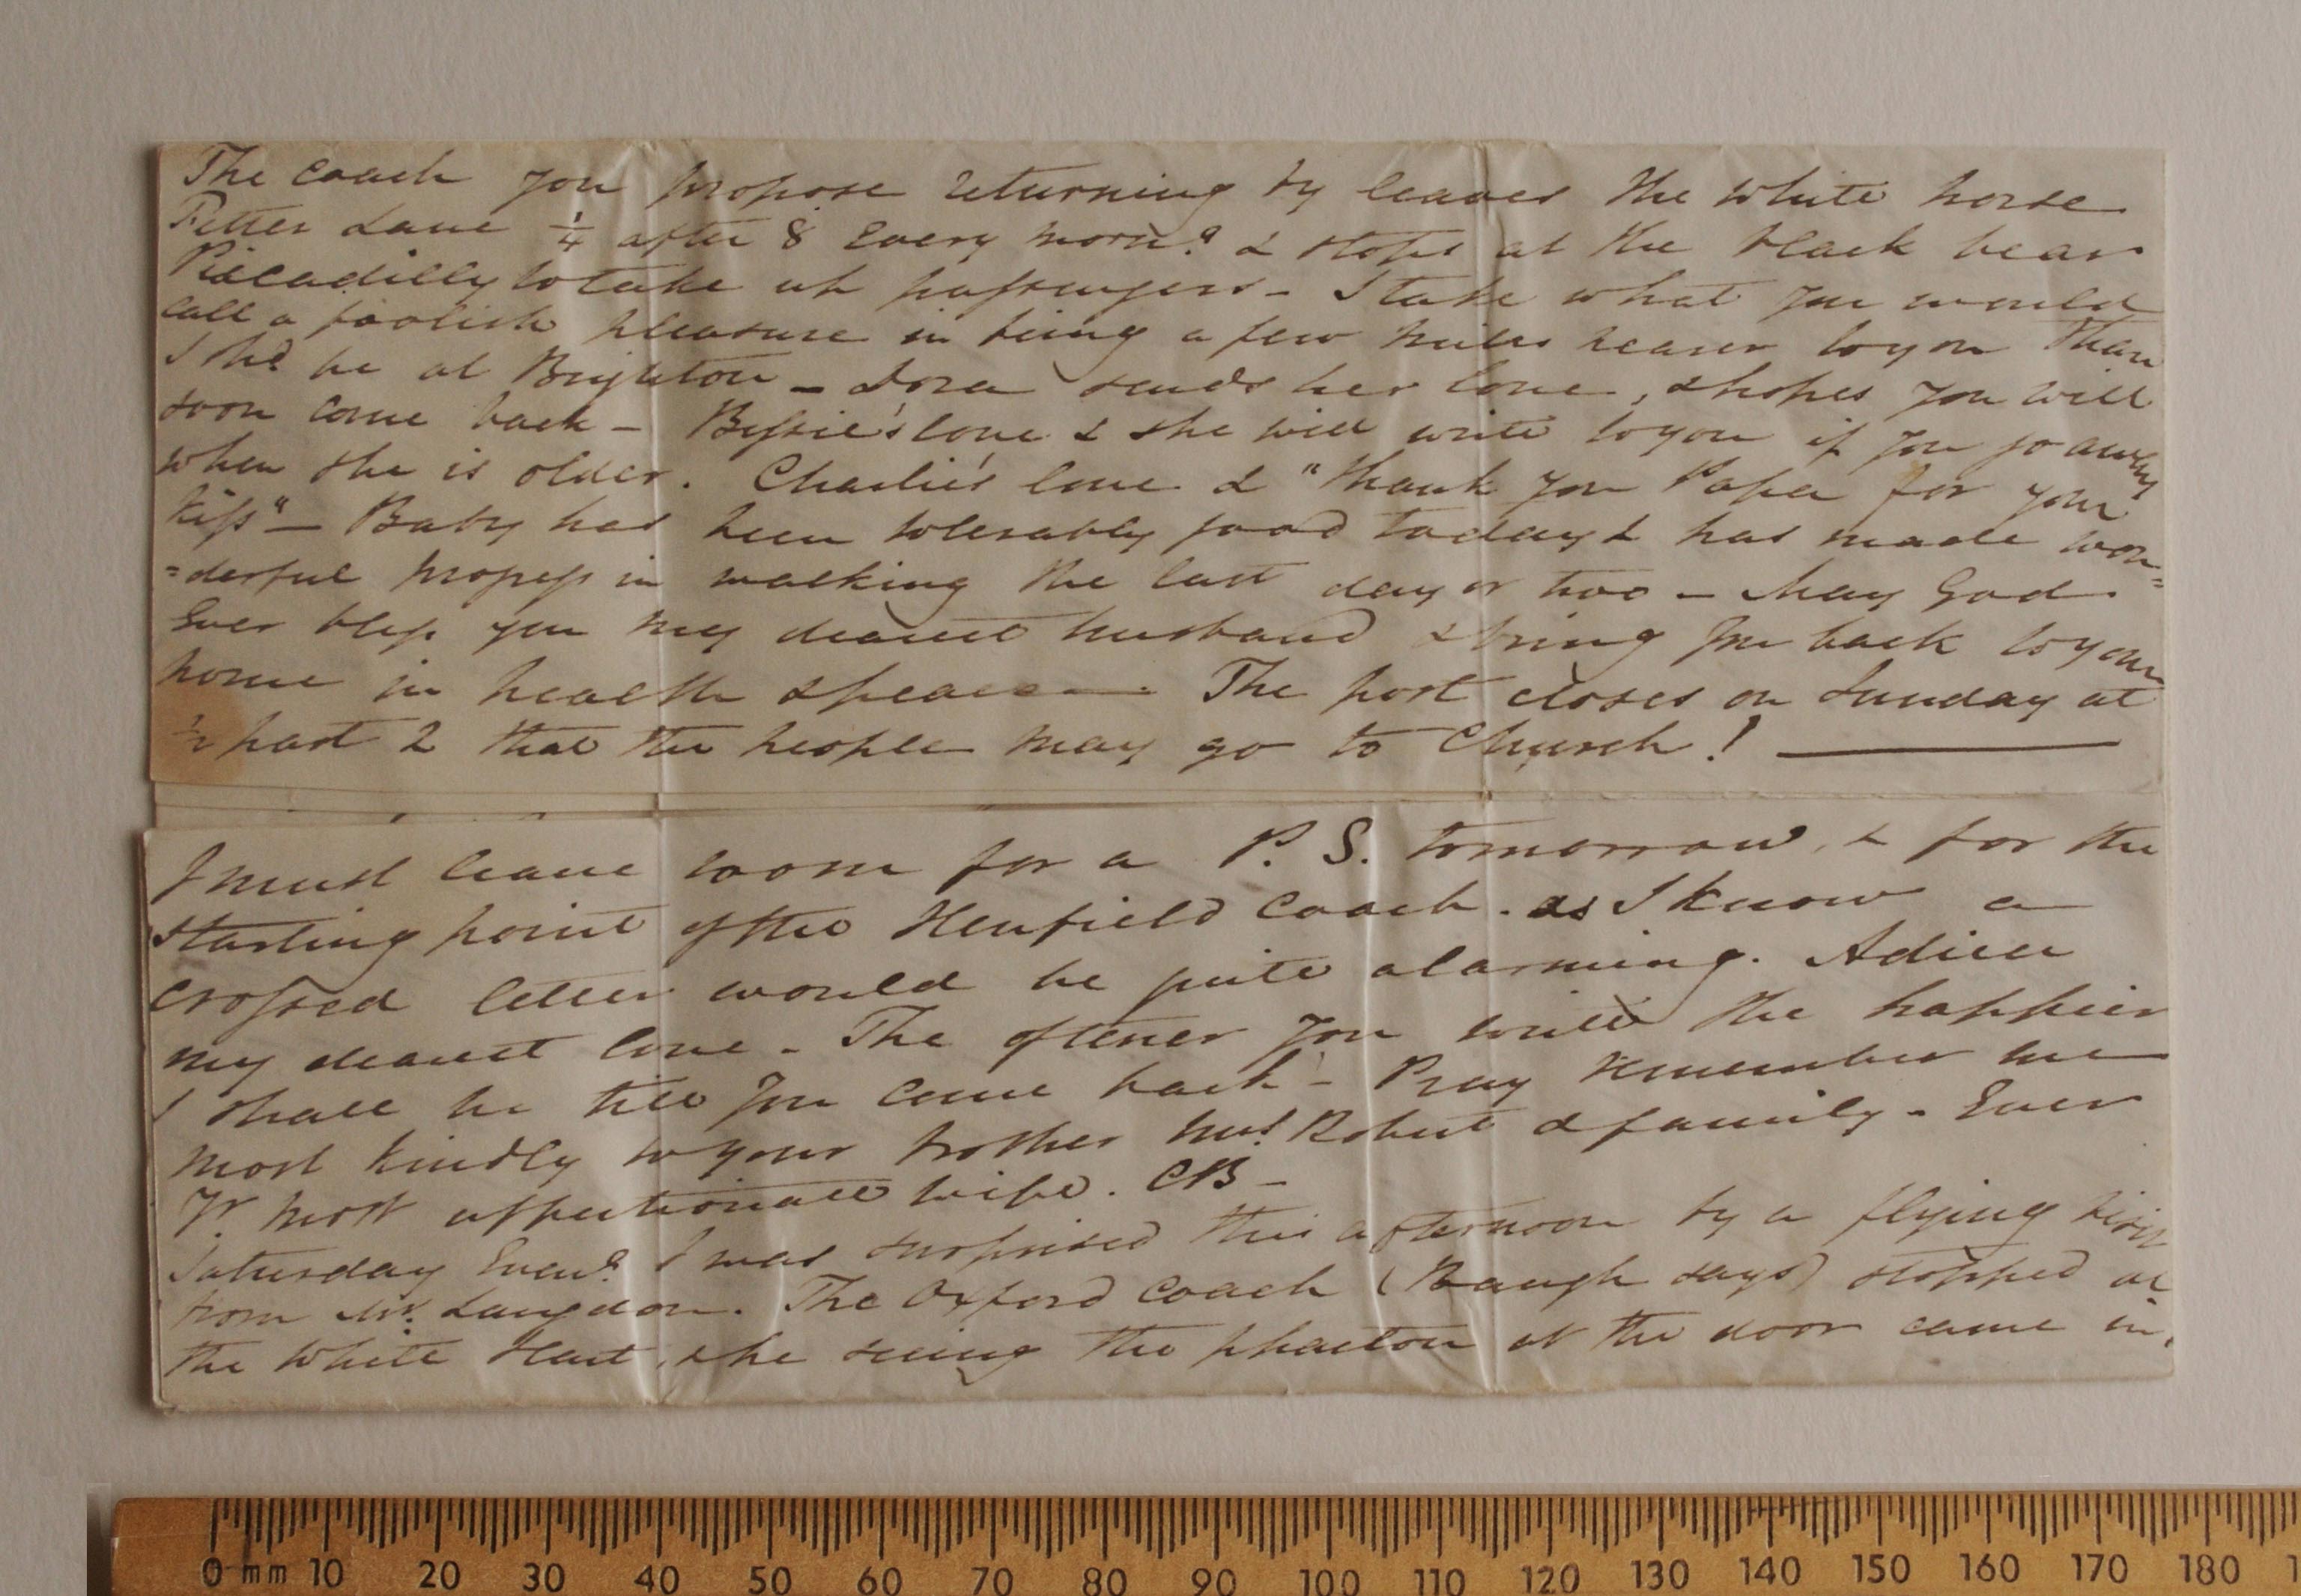 The coach you propose returning by leaves the White horse
Fetter Lane ¼ after 8 every morng & stops at the black bear
Piccadilly to take up passengers – I take what you would
call a foolish pleasure in being a few miles nearer to you than
I shd be at Brighton – Dora sends her love, & hopes you will
soon come back – Bessie's love & she will write to you if you go away
when she is older. Charlie's love & "thank you Papa for your
kiss" – Baby has been tolerably good today & has made won=
=derful progress in walking the last day or two – May God
ever bless you my dearest husband & bring you back to your
home in health & peace — The post closes on Sunday at
½ past 2 that the people may go to Church! —
I must leave room for a P.S. tomorrow, & for the
starting point of the Henfield Coach. as I know a
crossed letter would be quite alarming. Adieu
my dearest love – The oftener you write the happier
I shall be till you come back – Pray remember me
most kindly to your brother Mrs Robert & family – Ever
Yr most affectionate wife. CB –
Saturday Eveng I was surprised this afternoon by a flying visit
from Mr. Langdon. The Oxford Coach (Baugh says) stopped at
the White Hart, & he seeing the phaeton at the door came in,
0 mm 10 20 30 40 50 60 70 80 90 100 110 120 130 140 150 160 170 180 1